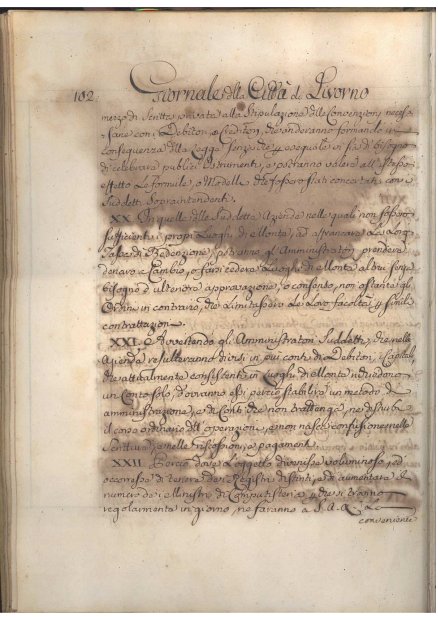 182.
Giornale della Città di Livorno
mezzo di Scritta privata alla Stipulazione delle Convenzioni neces
sarie con i Debitori, e Creditori, che anderanno formando in
consequenza della Legge senza che
di celebrare pubblici Istrumenti, e potranno valersi all'istesso
effetto le Formule, o Modelli, che fossero stati concertati con i
Suddetti Soprintendenti.
XX. In quelle delle Suddette Aziende nelle quali non fossero
sufficienti i propri Luoghi di Monte, ad affrancare la Loro
Tassa di Redenzione, potranno gl'Amministratori prendere
denaro a Cambio, o farsi cedere Luoghi di Monte da altri senza
bisogno d'ulteriore approvazione, o consenso, non ostante gli
Ordini in contrario, che Limitassero le Loro facoltà, per simili
contrattazioni.
XXI. E Avvertendo gli Amministratori Suddetti, che nelle
Aziende resulteranno divisi in più conti di Debitori, i Capitali
che attualmente consistenti in Luoghi di Monte riducono
un Conto solo, dovranno essi perciò stabilire un metodo di
amministrazione, e di Conti che non trattenga, ne disturbi
il corso ordinario dell'operazioni, e non nasca confusione nelle
Scritture, e nelle riscossioni, e pagamenti.
XXII. Perciò dove l'oggetto divenisse voluminoso, ed
occorresse di tenere dei Registri distinti, e di aumentare il
numero dei Ministri di Computisteria
regolarmente in giorno ne faranno a S.A.R.
conveniente